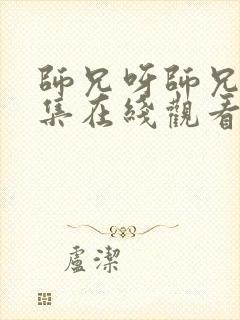 師兄呀師兄
集在綫觀看
盧潔